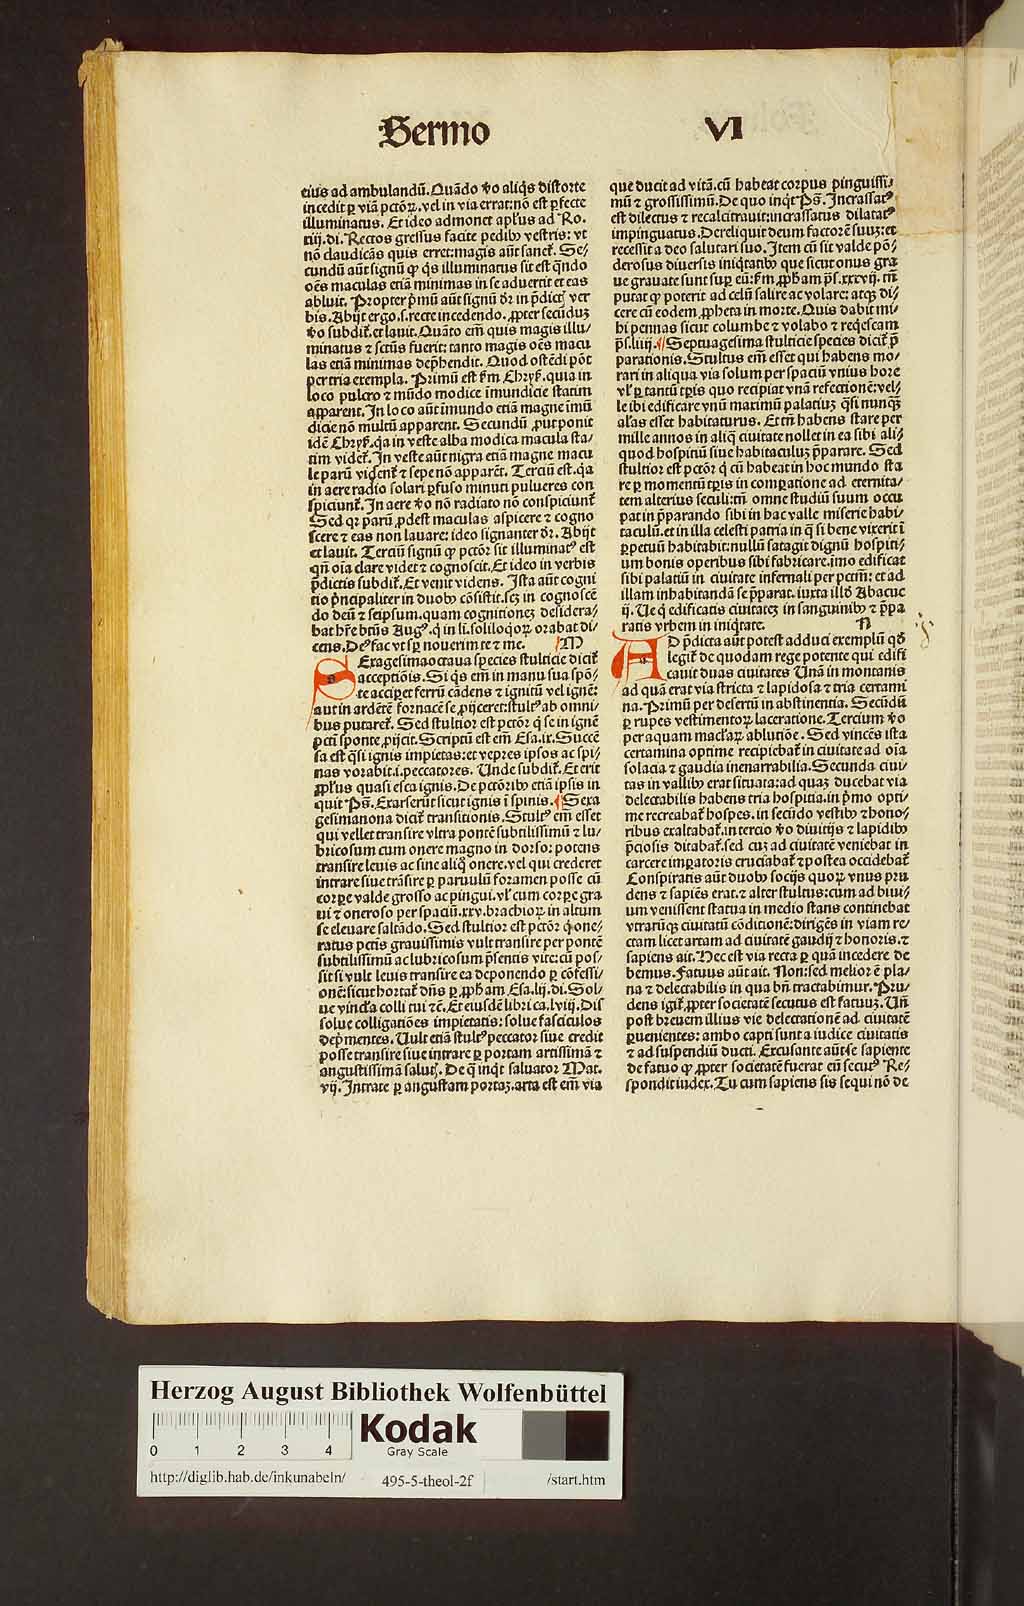 Sermo VI
eius ad ambulandū. Quādo ꝟo aliq̄s distorte
incedit ꝑ viā pctōꝝ. vel in via errat: nō est ꝑfecte
illuminatus. Et ideo admonet apl̓us ad Ro.
xiij. di. Rectos gressus facite pedibꝰ vestris: vt
nō claudicās quis erret: magis aūt sanet᷑. Se⸗
cundū aūt signū ꝙ q̄s illuminatus sit est qn̄do
oēs maculas etiā minimas in se aduertit et eas
abluit. Propter p̄mū aūt signū d̄r in p̄dict̄ ver
bis. Abijt ergo .s. recte incedendo. ꝓpter secūdū
ꝟo subdit᷑. et lauit. Quāto em̄ quis magis illu⸗
minatus ⁊ sctūs fuerit: tanto magis oēs macu
las etiā minimas dep̄hendit. Quod ostēdi pōt
per tria exempla. Primū est ẜm Chryẜ. quia in
loco pulcro ⁊ mūdo modice īmundicie statim
apparent. In loco aūt īmundo etiā magne īmū
dicie nō multū apparent. Secundū ꝓut ponit
idē Chryẜ. qa in veste alba modica macula sta⸗
tim videt᷑. In veste aūt nigra etiā magne macu
le parū vident᷑ ⁊ sepe nō apparēt. Terciū est. qa
in aere radio solari ꝑfuso minuti pulueres con
spiciunt᷑. In aere ꝟo nō radiato nō conspiciunt᷑
Sed qꝛ parū ꝓdest maculas aspicere ⁊ cogno
scere ⁊ eas non lauare: ideo signanter d̄r. Abijt
et lauit. Terciū signū ꝙ pctōr sit illuminatꝰ est
qn̄ oīa clare videt ⁊ cognoscit. Et ideo in verbis
p̄dictis subdit᷑. Et venit videns. Ista aūt cogni
tio p̄ncipaliter in duobꝰ cōsistit. scꝫ in cognoscē
do deū ⁊ seipsum. quam cognitionez desidera⸗
bat hr̄e btūs Augꝰ. q̄ in li. soliloqoꝝ orabat di⸗
cens. Deꝰ fac vt sꝑ nouerim te ⁊ me. M
Sexagesimaoctaua species stulticie dicit᷑
acceptiōis. Si q̄s em̄ in manu sua spō⸗
te acciꝑet ferrū cādens ⁊ ignitū vel ignē:
aut in ardētē fornacē se ꝓijceret: stultꝰ ab omni⸗
bus putaret᷑. Sed stultior est pctōr q̄ se in ignē
pcti sponte ꝓijcit. Scriptū est em̄ Esa. ix. Succē
sa est q̄si ignis impietas: et vepres ipsos ac spi⸗
nas vorabit .i. peccatores. Unde subdit᷑. Et erit
ꝓpl̓us quasi esca ignis. De pctōribꝰ etiā ipsis in
quit Pŝ. Exarserūt sicut ignis ī spinis. ¶ Sexa
gesimanona dicit᷑ transitionis. Stultꝰ em̄ esset
qui vellet transire vltra pontē subtilissimū ⁊ lu⸗
bricosum cum onere magno in dorso: potens
transire leuis ac sine aliq̄ onere. vel qui crederet
intrare siue trāsire ꝑ paruulū foramen posse cū
corꝑe valde grosso ac pingui. vl̓ cum corꝑe gra
ui ⁊ oneroso per spaciū. xxv. brachioꝝ in altum
se eleuare saltādo. Sed stultior est pctōr q̄ one⸗
ratus pctis grauissimis vult transire per pontē
subtilissimū ac lubricosum p̄sentis vite: cū pos⸗
sit si vult leuis transire ea deponendo ꝑ cōfessi⸗
onē: sicut hortat᷑ dn̄s ꝑ ꝓph̄am Esa. lij. di. Sol⸗
ue vincl̓a colli tui ⁊c̄. Et eiusdē libri ca. lviij. Dis
solue colligatiōes impietatis: solue fasciculos
dep̄mentes. Uult etiā stultꝰ peccator siue credit
posse transire siue intrare ꝑ portam artissimā ⁊
angustissimā salutꝭ. De q̄ inq̄t saluator Mat.
vij. Intrate ꝑ angustam portaz. arta est em̄ via
que ducit ad vitā. cū habeat corpus pinguissi⸗
mū ⁊ grossissimū. De quo inq̄t Pŝ. Incrassatꝰ
est dilectus ⁊ recalcitrauit: incrassatus dilatatꝰ
impinguatus. Dereliquit deum factorē suuz: et
recessit a deo salutari suo. Item cū sit valde pō⸗
derosus diuersis iniq̄tatibꝰ que sicut onus gra
ue grauate sunt suꝑ eū: ẜm ꝓph̄am pŝ. xxxvij. tn̄
putat ꝙ poterit ad celū salire ac volare: atqꝫ di⸗
cere cū eodem ꝓpheta in morte. Quis dabit mi⸗
hi pennas sicut columbe ⁊ volabo ⁊ req̄escam
pŝ. liiij. ¶ Septuagesima stulticie species dicit᷑ p̄
parationis. Stultus em̄ esset qui habens mo⸗
rari in aliqua via solum per spaciū vnius hore
vl̓ ꝑ tantū tp̄is quo recipiat vnā refectionē: vel⸗
le ibi edificare vnū maximū palatiuz q̄si nunq̄ꝫ
al̓as esset habitaturus. Et tn̄ habens stare per
mille annos in aliq̄ ciuitate nollet in ea sibi ali⸗
quod hospitiū siue habitaculuz p̄parare. Sed
stultior est pctōr q̄ cū habeat in hoc mundo sta
re ꝑ momentū tp̄is in comꝑatione ad eternita⸗
tem alterius seculi: tn̄ omne studiū suum occu
pat in p̄parando sibi in hac valle miserie habi⸗
taculū. et in illa celesti patria in q̄ si bene vixerit ī
ꝑpetuū habitabit: nullū satagit dignū hospiti⸗
um bonis operibus sibi fabricare. imo edificat
sibi palatiū in ciuitate infernali per pctm̄: et ad
illam inhabitandā se p̄parat. iuxta illð Abacuc
ij. Ue q̄ edificatis ciuitatez in sanguinibꝰ ⁊ p̄pa
ratis vrbem in iniq̄tate. N
AD p̄dicta aūt potest adduci exemplū qð
legit᷑ de quodam rege potente qui edifi
cauit duas ciuitates Unā in montanis
ad quā erat via stricta ⁊ lapidosa ⁊ tria certami
na. Primū per desertū in abstinentia. Secūdū
ꝑ rupes vestimentoꝝ laceratione. Tercium ꝟo
per aquam macl̓aꝝ ablutiōe. Sed vincēs ista
certamina optime recipiebat᷑ in ciuitate ad oīa
solacia ⁊ gaudia inenarrabilia. Secunda ciui⸗
tas in vallibꝰ erat situata: ad quaz ducebat via
delectabilis habens tria hospitia. in p̄mo opti⸗
me recreabat᷑ hospes. in secūdo vestibꝰ ⁊ hono⸗
ribus exaltabat᷑. in tercio ꝟo diuitijs ⁊ lapidibꝰ
p̄ciosis ditabat᷑. sed cuz ad ciuitatē veniebat in
carcere imꝑatoris cruciabat᷑ ⁊ postea occidebat᷑
Conspiratis aūt duobꝰ socijs quoꝝ vnus pru
dens ⁊ sapiēs erat. ⁊ alter stultus: cum ad biui⸗
um venissent statua in medio stans continebat
vtrarūqꝫ ciuitatū cōditionē: dirigēs in viam re⸗
ctam licet artam ad ciuitatē gaudij ⁊ honoris. ⁊
sapiens ait. Hec est via recta ꝑ quā incedere de
bemus. Fatuus aūt ait. Non: sed melior ē pla⸗
na ⁊ delectabilis in qua bn̄ tractabimur. Pru⸗
dens igit᷑ ꝓpter societatē secutus est fatuuz. Un̄
post breuem illius vie delectationē ad ciuitatē
ꝑuenientes: ambo capti sunt a iudice ciuitatis
⁊ ad suspendiū ducti. Excusante aūt se sapiente
de fatuo ꝙ ꝓpter societatē fuerat eū secutꝰ Re⸗
spondit iudex. Tu cum sapiens sis sequi nō de
Herzog August Bibliothek Wolfenbüttel
Kodak
Gray Scale
0 1 2 3 4
http://diglib.hab.de/inkunabeln/ 495-5-theol-2f /start.htm